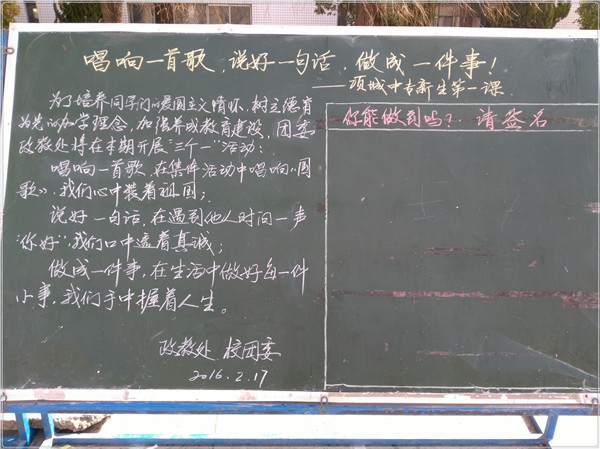 唱响一首歌，说好一句话，做成一件事！
——项城中专新生第一课
为了培养同学们的爱国主义情怀，树立德育
为先的办学理念，加强养成教育建设，团委
政教处将在本期开展“三个一”活动：
唱响一首歌，在集体活动中唱响《国
歌》，我们心中装着祖国；
说好一句话，在遇到他人时问一声
“你好”，我们口中透着真诚；
做成一件事，在生活中做好每一件
小事，我们手中握着人生。
政教处 校团委
2016.2.17
你能做到吗？请签名